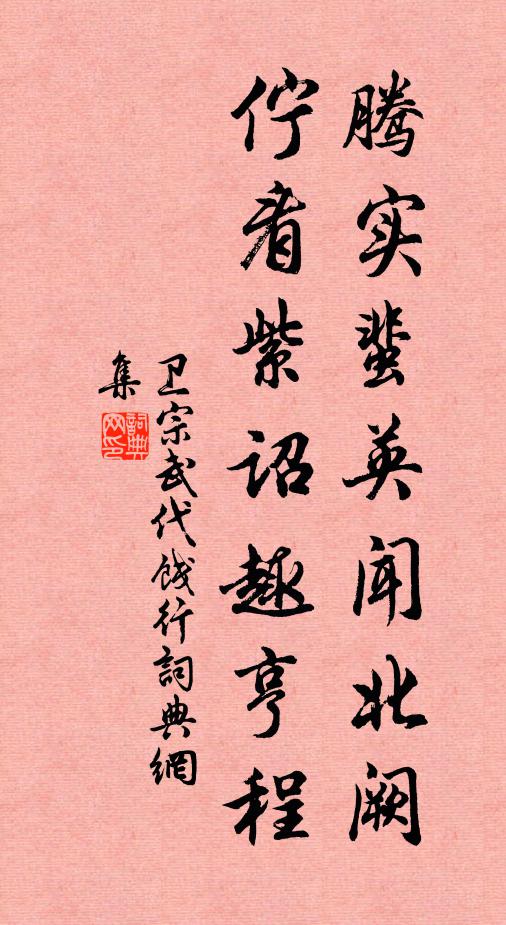 腾实蜚英闻北阙
伫看紫诏趣亨程
卫宗武代饯行詞典網
集
詞典网印